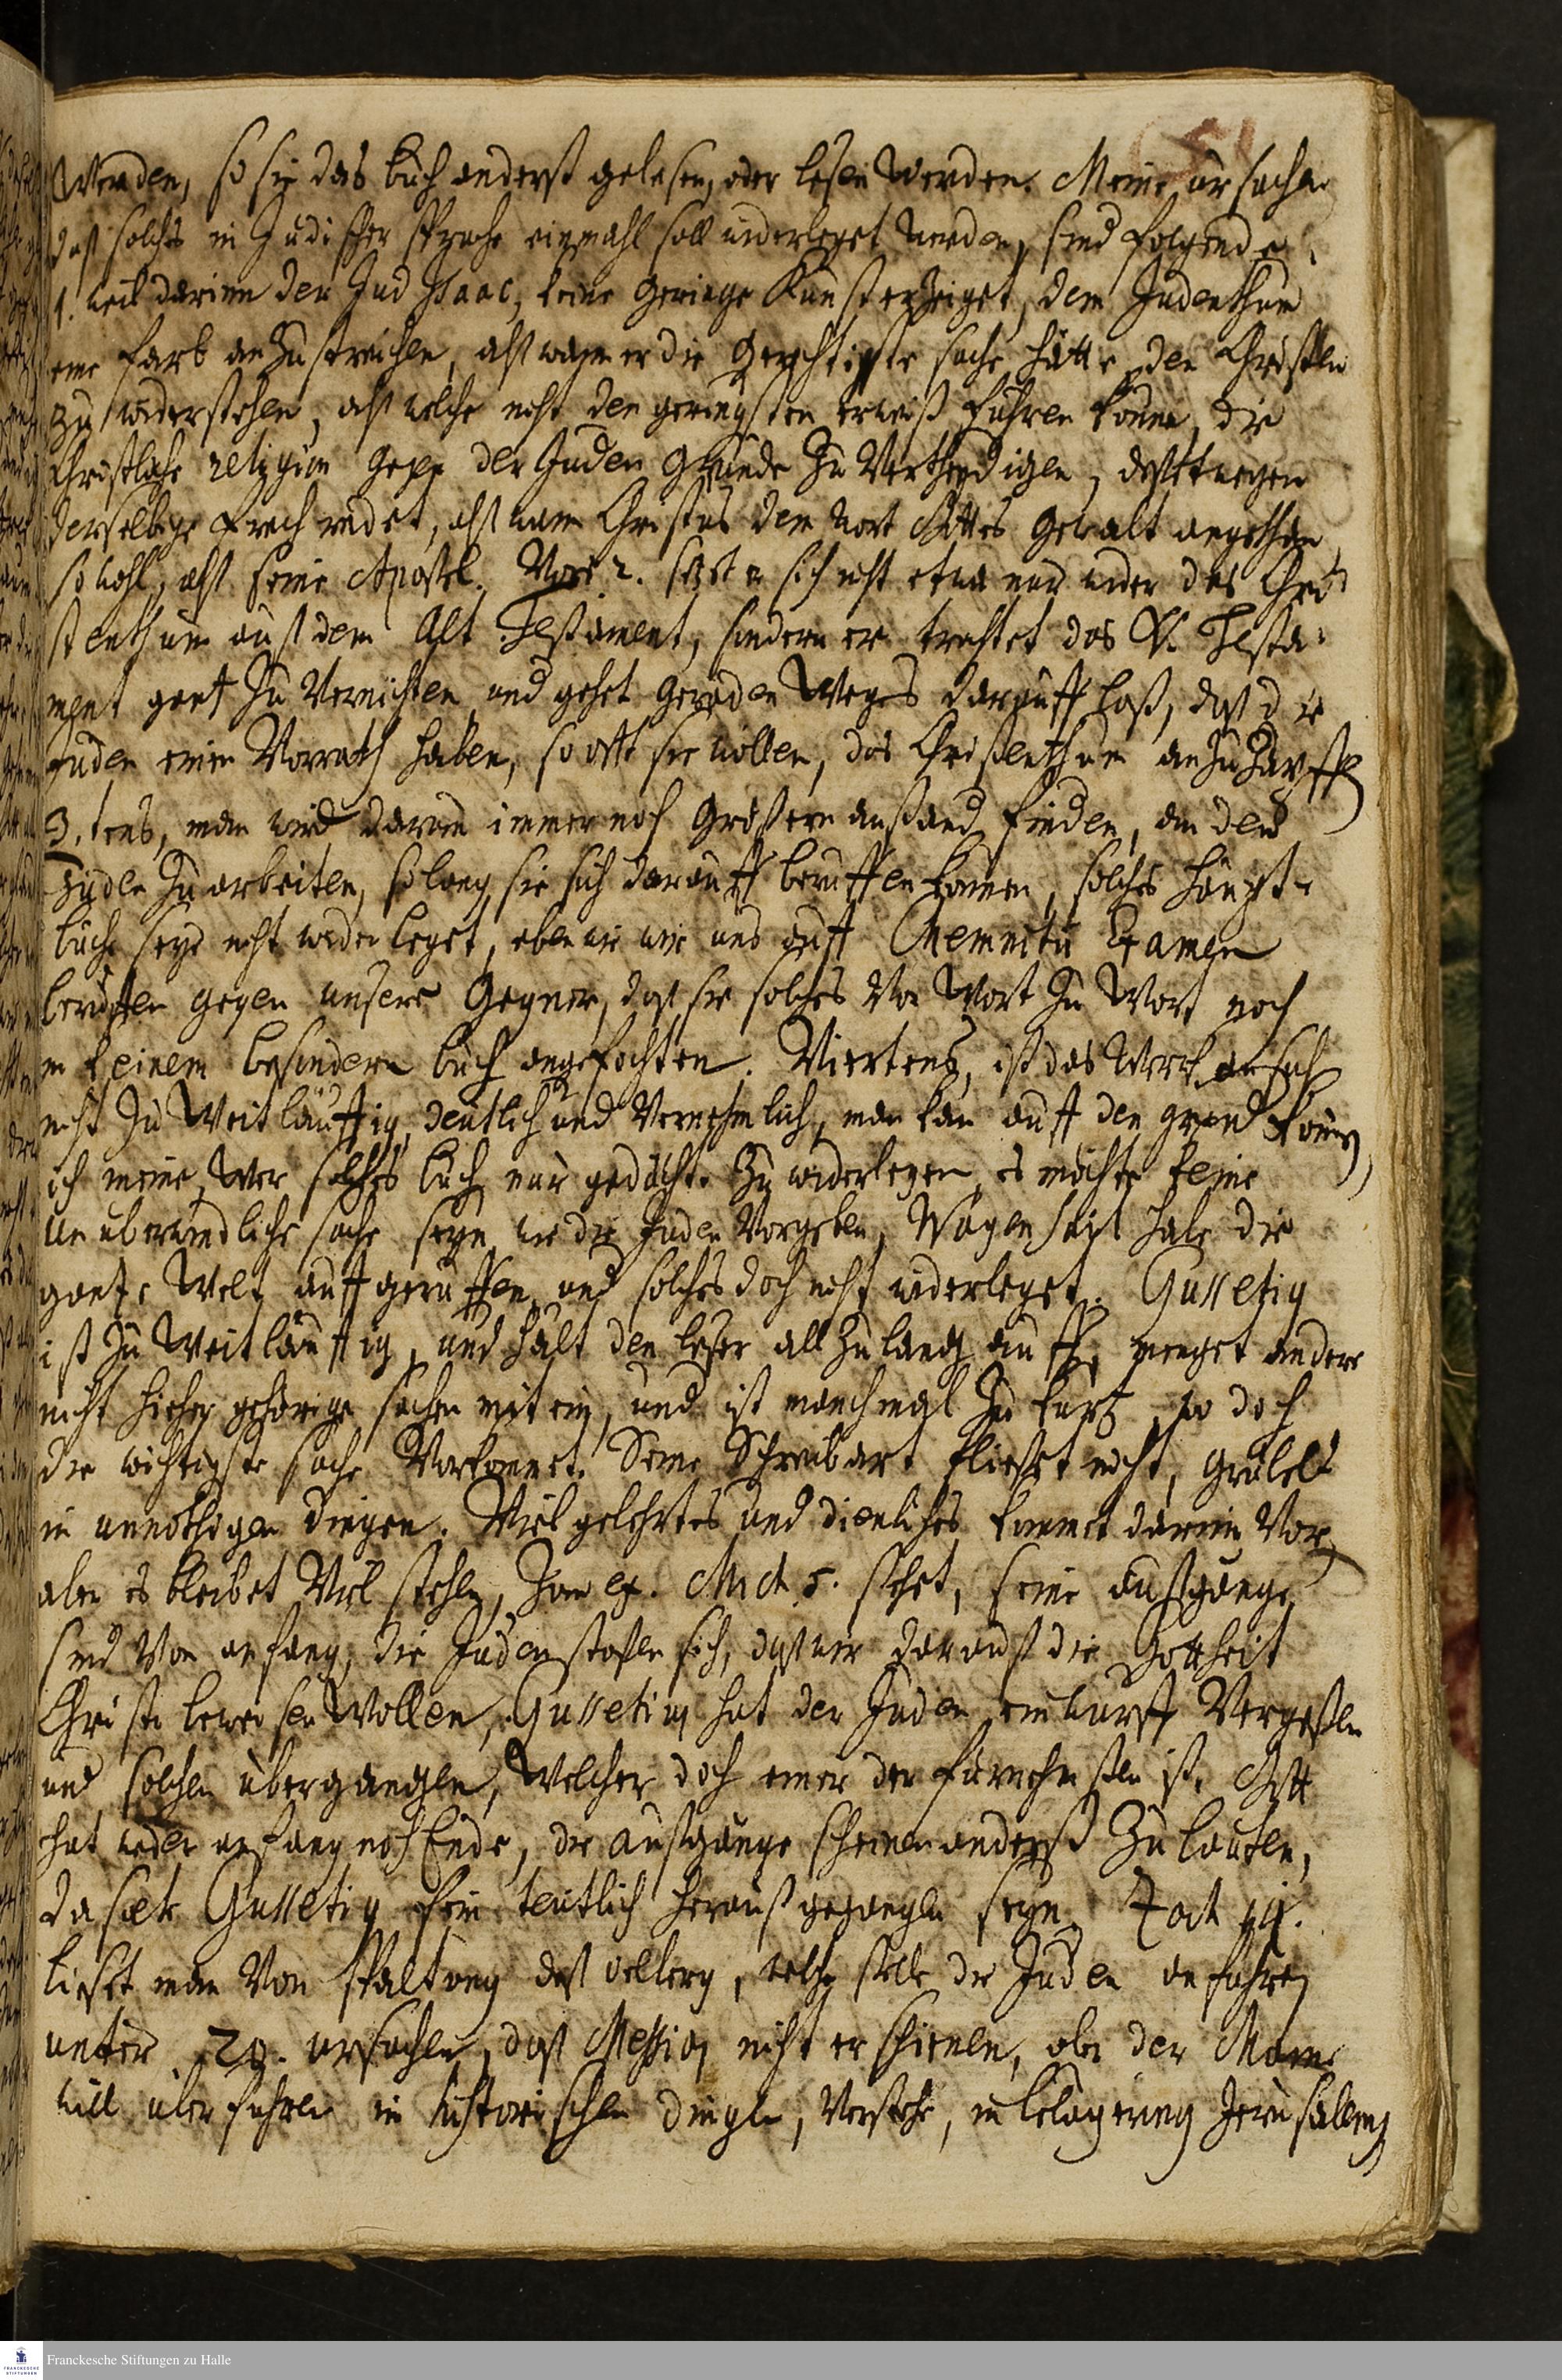 151
Werden, so sie das buch anderst gelesen, oder lesen werden. Meine ursachen
daß solches in Judischer sprache einmahl soll widerleget werden, sind folgende
1. weil darinn der Jud Isaac, keine geringe Kunst erzeiget, dem Judenthum
eine farb anzustreichen, alß wann er die gerechtigste sache hätte, den Christen
zu widerstehen, alß welche nicht den geringsten erweiß führen könne, die
Christliche religion gegen der Juden gründe zu vertheydigen, destwegen
derselbige frech redet, alß wann Christus dem wort Gottes gewalt angethan,
so wohl, alß seine Apostel. Vors 2. setzt er sich nicht etwa nur wider das Chri-
stenthum auß dem Alt. Testament, sondern er trachtet das N. Testa-
ment gantz zu vernichten und gehet geraden Weges darauff loß, daß die
Juden einen Vorrath haben, so offt sie wollen, das Christenthum anzuzapffen
3. tens, man wird darum immer noch größern anstand finden, an den
Juden zu arbeiten, solang sie sich darauff beruffen können, solches haupt-
buch seye nicht widerleget, eben wie wir uns auff Chemnitii Examen
beruffen gegen unsere Gegner, daß sie solches von Wort zu Wort noch
in keinem besondern buch angefochten. Viertens, ist das Werk an sich
nicht zu Weitläufftig, deutlich und vernehmlich, man kan auff den grund kommen
ich meine, wer solches buch nur gedächte zu widerlegen, es möchte keine
unüberwindliche sache seyn wie die Juden vorgeben, Wagenseil habe die
gantze Welt auffgeruffen und solches doch nicht widerleget. Gussetig
ist zu Weitläufftig, und hält den leser allzulang auff, menget andere
nicht hieher gehörige sachen mit ein, und ist manchmal zu kurtz, wo doch
die wichtigste sache vorkommet. Seine Schreibart fließet nicht, grübelt
in unnöthigen dingen. Viel gelehrtes und dienliches kommet darinn vor,
aber es bleibet viel stehen, zum ex. Mich. 5. stehet, seine außgänge
sind von anfang, die Juden stoßen sich, daß wir darauß die Gottheit
Christi beweisen wollen, Gussetig hat der Juden einwurff vergeßen
und solchen übergangen, welcher doch einer der fürnehmsten ist. Gott
hat weder anfang noch Ende, die außgänge scheinen anderst zu lauten,
da solte Gussetig fein teutlich heraußgegangen seyn. Zach 14.
lieset man von spaltung deß oelberg, welche stelle die Juden anführen
unter 20. ursachen, daß Messias nicht erschienen, ob der Mann
will überführen in historischen dingen, verstehe, in belagerung Jerusalems
Franckesche Stiftungen zu Halle